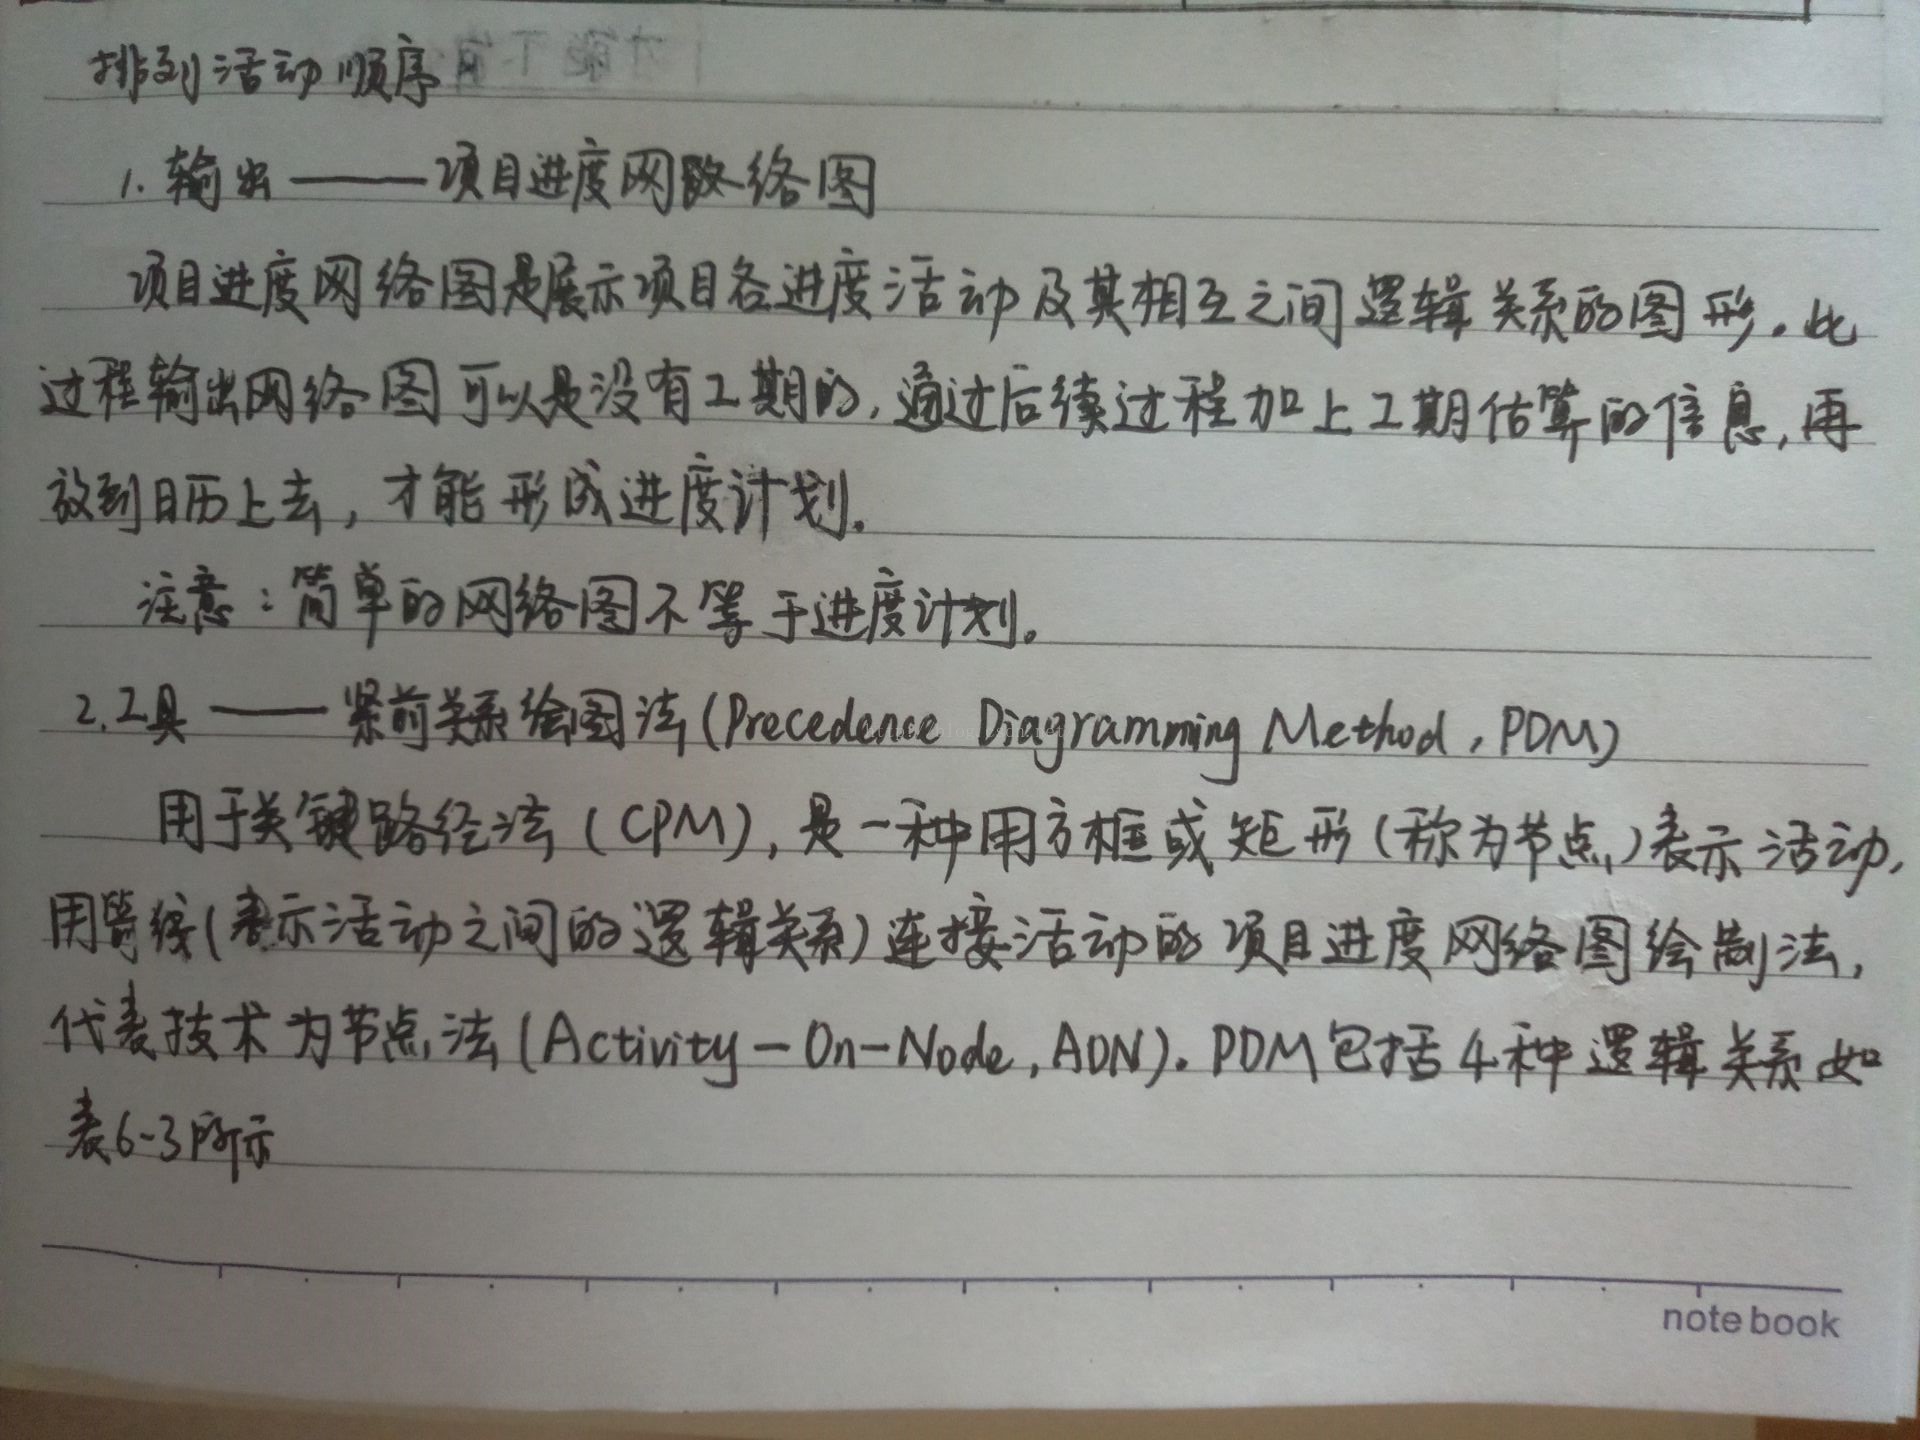 排列活动顺序
1. 输出——项目进度网络图
项目进度网络图是展示项目各进度活动及其相互之间逻辑关系的图形。此
过程输出网络图可以是没有工期的,通过后续过程加上工期估算的信息,再
放到日历上去,才能形成进度计划。
注意:简单的网络图不等于进度计划。
2.工具——紧前关系绘图法(Precedence Diagramming Method,PDM)
用于关键路径法(CPM),是一种用方框或矩形(称为节点)表示活动,
用箭线(表示活动之间的逻辑关系)连接活动的项目进度网络图绘制法,
代表技术为节点法(Activity-On-Node,AON)。PDM包括4种逻辑关系如
表6-3所示
notebook